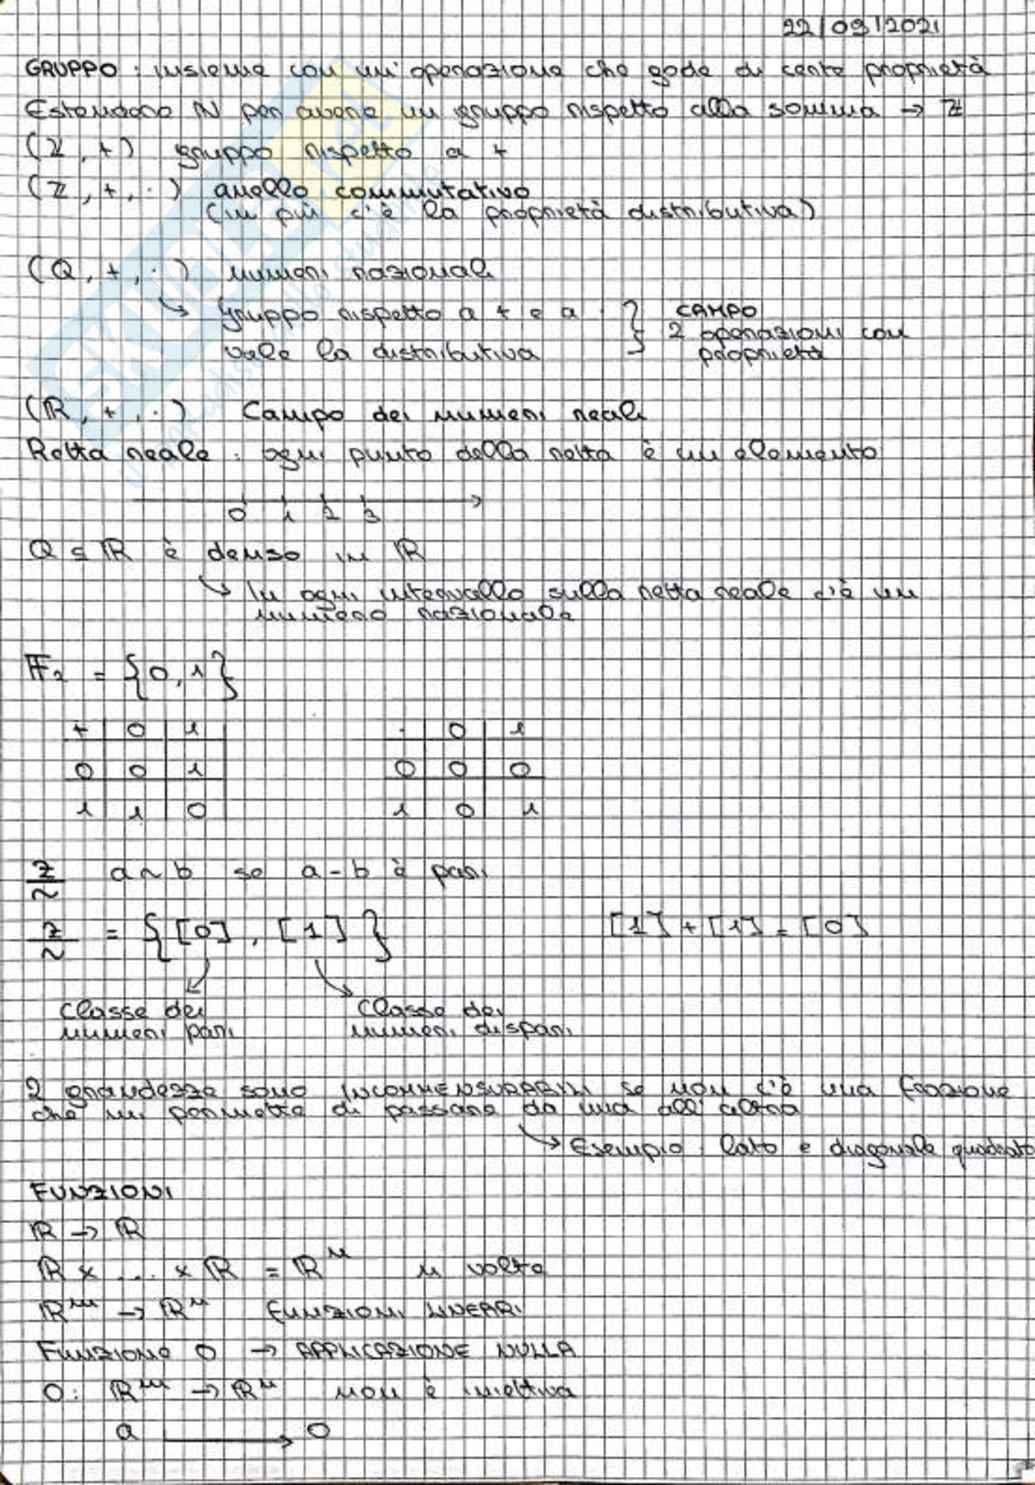 22/09/2021
GRUPPO : insieme con un'operazione che gode di certe proprietà
Estendono N per avere un gruppo rispetto alla somma → Z
(Z, +) gruppo rispetto a +
(Z, +, ·) anello commutativo
(in più c'è la proprietà distributiva)
(Q, +, ·) numeri razionali
↳ gruppo rispetto a + e a · } CAMPO
vale la distributiva 2 operazioni con
proprietà
(R, +, ·) Campo dei numeri reali
Retta reale : ogni punto della retta è un elemento
0 1 2 3
Q ⊆ R è denso in R
↳ In ogni intervallo sulla retta reale c'è un
numero razionale
F₂ = {0, 1}
+ 0 1 · 0 1
0 0 1 0 0 0
1 1 0 1 0 1
Z/~ a ~ b se a - b è pari
Z/~ = {[0], [1]} [1] + [1] = [0]
classe dei classe dei
numeri pari numeri dispari
2 grandezze sono INCOMMENSURABILI se non c'è una frazione
che mi permette di passare da una all'altra
→ Esempio : lato e diagonale quadrato
FUNZIONI
R → R
R x ... x R = Rⁿ n volte
Rᵐ → Rⁿ FUNZIONI LINEARI
Funzione 0 → APPLICAZIONE NULLA
0 : Rᵐ → Rⁿ non è iniettiva
a → 0